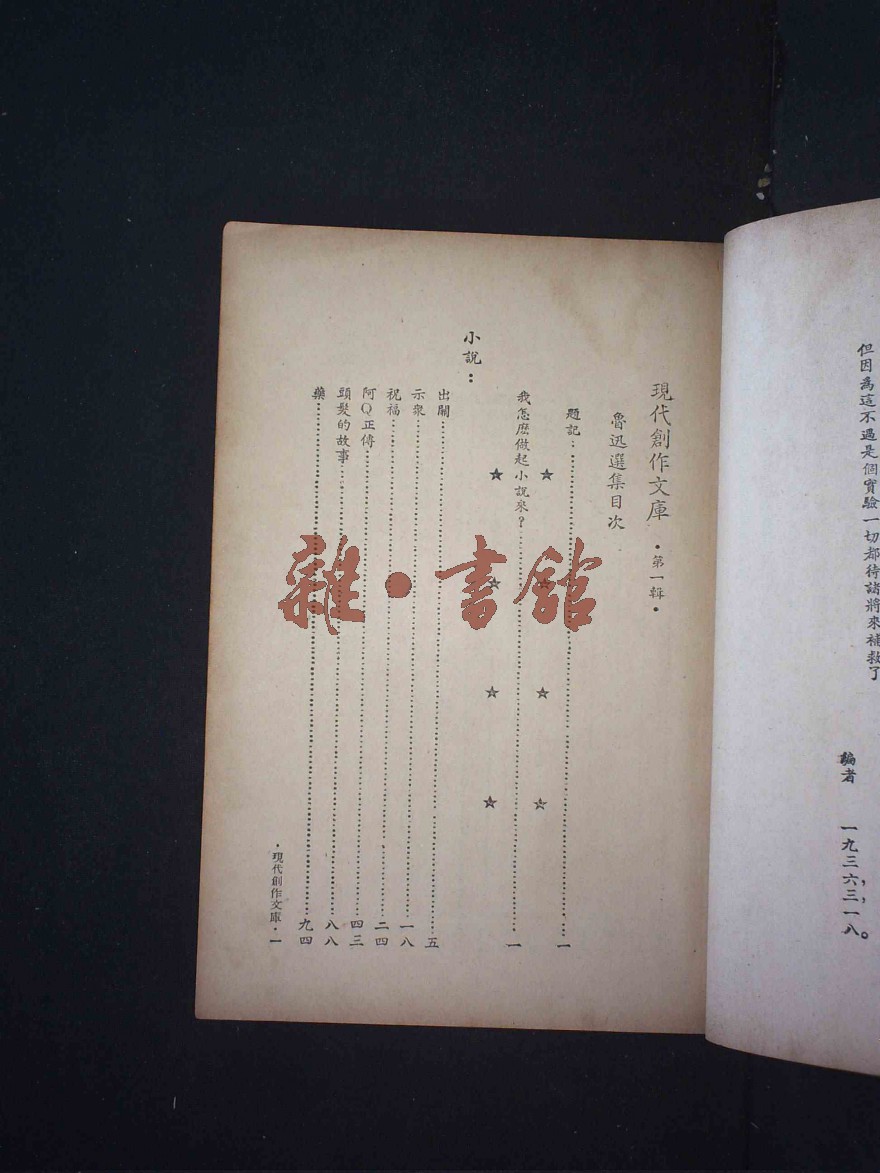 但因為這不過是個實驗一切都待諸將來補救了
編者 一九三六，三，一八。
現代創作文庫 •第一輯•
魯迅選集目次
題記 一
☆ ☆ ☆ ☆
我怎麽做起小說來？ 一
★ ☆ ☆ ☆
小說：
出關 五
示衆 一八
祝福 二四
阿Q正傳 四三
頭髮的故事 八八
藥 九四
•現代創作文庫• 一
雜•書館